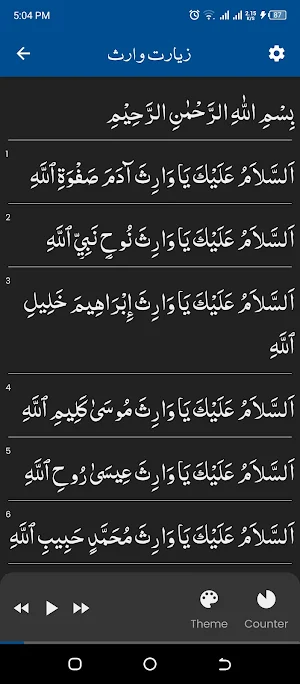 5:04 PM
2.15 KB/S
87
زیارت وارث
بِسْمِ اللهِ الرَّحْمٰنِ الرَّحِيْمِ
1
اَلسَّلَامُ عَلَيْكَ يَا وَارِثَ آدَمَ صَفْوَةِ ٱللَّهِ
2
اَلسَّلَامُ عَلَيْكَ يَا وَارِثَ نُوحٍ نَبِيِّ ٱللَّهِ
3
اَلسَّلَامُ عَلَيْكَ يَا وَارِثَ إِبْرَاهِيمَ خَلِيلِ
ٱللَّهِ
4
اَلسَّلَامُ عَلَيْكَ يَا وَارِثَ مُوسَىٰ كَلِيمِ ٱللَّهِ
5
اَلسَّلَامُ عَلَيْكَ يَا وَارِثَ عِيسَىٰ رُوحِ ٱللَّهِ
6
اَلسَّلَامُ عَلَيْكَ يَا وَارِثَ مُحَمَّدٍ حَبِيبِ ٱللَّهِ
Theme
Counter